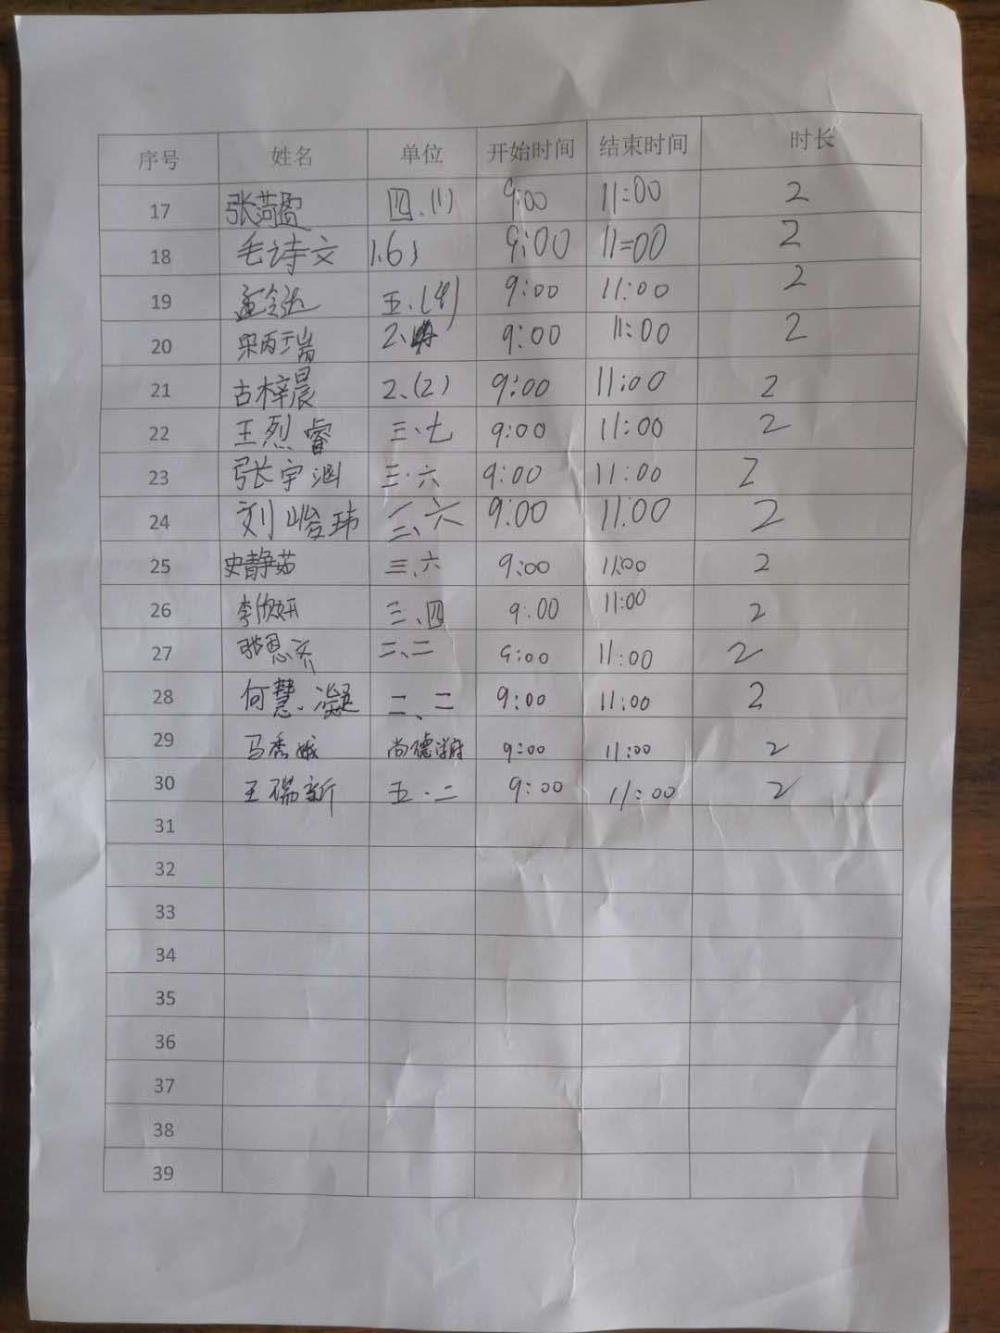 序号 姓名 单位 开始时间 结束时间 时长
17 张菏盈 四.(1) 9:00 11:00 2
18 毛诗文 1.6) 9:00 11=00 2
19 孟 五.(4) 9:00 11:00 2
20 宋丙瑞 2、 9:00 11:00 2
21 古梓晨 2、(2) 9:00 11:00 2
22 王烈睿 三、七 9:00 11:00 2
23 张宇涵 三·六 9:00 11:00 2
24 刘峻玮 三、六 9:00 11:00 2
25 史静茹 三、六 9:00 11:00 2
26 李欣妍 三、四 9:00 11:00 2
27 张恩齐 二、二 9:00 11:00 2
28 何慧凝 二、二 9:00 11:00 2
29 马秀娥 尚德学府 9:00 11:00 2
30 王瑞新 五·二 9:00 11:00 2
31
32
33
34
35
36
37
38
39